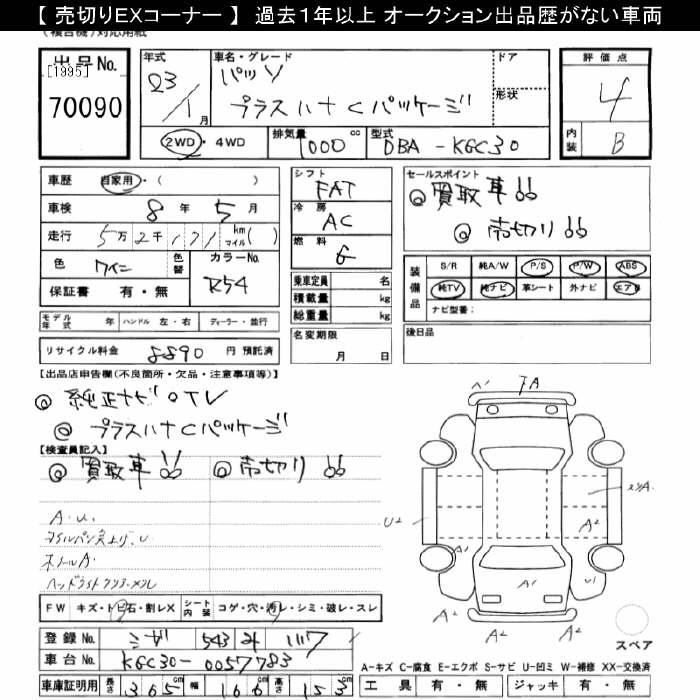 【 売切りEXコーナー 】 過去1年以上 オークション出品歴がない車両
(複合機)対応用紙
出品No. [1995] 70090
年式 23/1月
車名・グレード パッソ プラスハナ Cパッケージ
ドア 形状
2WD・4WD 排気量 1000 cc 型式 DBA-KGC30
評価点 4
内装 B
車歴 自家用・( )
車検 8年 5月
走行 5万2千171 km マイル( )
色 ワイン 色替 カラーNo. R54
保証書 有・無
モデル年式 年 ハンドル 左・右 ディーラー・並行
リサイクル料金 8890 円 預託済
シフト FAT
冷房 AC
燃料 G
乗車定員 名
積載量 kg
総重量 kg
名変期限 月 日
セールスポイント
◎ 買取車!!
◎ 売切り!!
装備品 S/R 純A/W P/S P/W ABS
純TV 純ナビ 革シート 外ナビ エアB
ナビ型番:
後日品
【出品店申告欄(不良箇所・欠品・注意事項等)】
◎ 純正ナビ・TV
◎ プラスハナCパッケージ
【検査員記入】
◎ 買取車!! ◎ 売切り!!
A・U.
オイルパン
ホイールA
FW キズ・トビ石・割レX シート内装 コゲ・穴・汚レ・シミ・破レ・スレ
登録No. 543
車台No. KGC30-0057783
車庫証明用 長さ 365cm 幅 166cm 高さ 153
A
A
U2
A2
A1
A1
U1
A2
A2
A2
スペア
A-キズ C-腐食 E-エクボ S-サビ U-凹ミ W-補修 XX-交換済
工具 有・無 ジャッキ 有・無